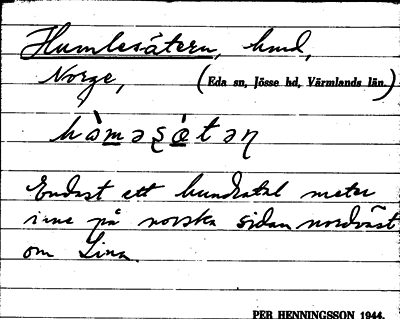 Humlesätern, hmd,
Norge, (Eda sn, Jösse hd, Värmlands län.)
hàməsætəɳ
Endast ett hundratal meter
inne på norska sidan nordväst
om Lina.
PER HENNINGSSON 1944.